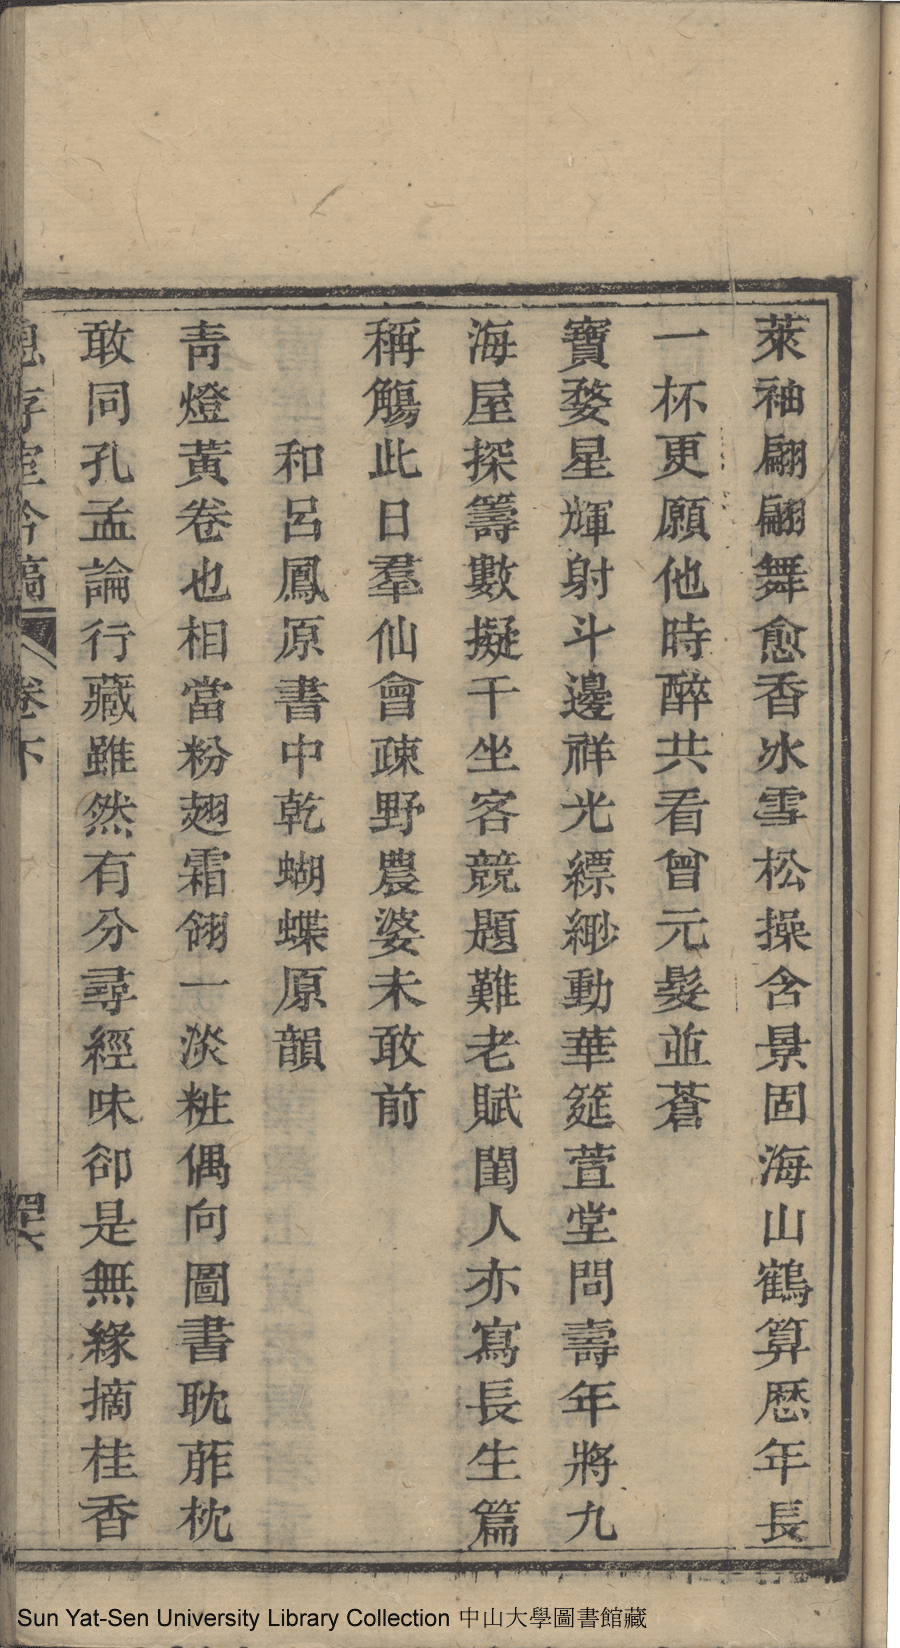 萊袖翩翩舞愈香冰雪松操含景固海山鶴算歷年長
一杯更願他時醉共看曾元髮並蒼
寶婺星輝射斗邊祥光縹緲動華筵萱堂問壽年將九
海屋探籌數擬千坐客競題難老賦閨人亦寫長生篇
稱觴此日羣仙會疎野農婆未敢前
和呂鳳原書中乾蝴蝶原韻
靑燈黃卷也相當粉翅霜翎一淡粧偶向圖書耽蓙枕
敢同孔孟論行藏雖然有分尋經味卻是無緣摘桂香
存室吟稿 卷下
Sun Yat-Sen University Library Collection 中山大學圖書館藏